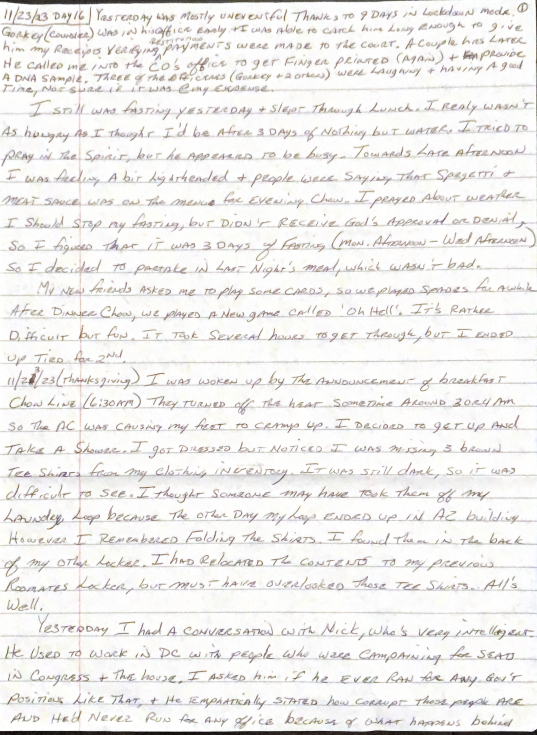 11/23/23 DAY 16 Yesterday was mostly uneventful Thanks to 9 Days in Lockdown mode. ①
Gorkey (counselor) was in his office early & I was able to catch him long enough to give
him my Receipts verifying restitution payments were made to the court. A couple hrs later
He called me into the CO's office to get Finger printed (Again) & provide
A DNA sample. Three of the officers (Gorkey & 2 others) were laughing & having A good
Time, Not sure if it was @ my expense.
I still was fasting yesterday & slept Through Lunch. I realy wasn't
As hungry As I Thought I'd be After 3 Days of Nothing but water. I tried to
pray in the Spirit, but he appeared to be busy. Towards late Afternoon
I was feeling A bit lightheaded & people were saying That Spegetti &
meat sauce was on the menue for evening Chow. I prayed About weather
I should stop my fasting, but Didn't receive God's Approval or Denial,
So I figured That it was 3 Days of fasting (mon. Afternoon - Wed Afternoon)
So I decided to partake in Last Night's meal, which wasn't bad.
My New friends asked me to play some cards, so we played Spades for awhile
After Dinner Chow, we played A New game called 'Oh Hell'. It's Rather
Difficult but fun. It took several hours to get through, but I ended
up Tied for 2nd.
11/23/23 (Thanksgiving) I was woken up by The Announcement of breakfast
Chow Line (6:30AM) They turned off the heat sometime Around 3 or 4 AM
So the AC was causing my feet to cramp up. I decided to get up And
Take A Shower. I got Dressed but Noticed I was missing 3 brown
Tee Shirts from my clothing inventory. It was still dark, so it was
difficult to see. I thought someone may have took them off my
Laundry Loop because the other Day my loop ended up in A2 building
However I Remembered Folding The Shirts. I found them in the back
of my other Locker. I had Relocated The contents to my previous
Roomates Locker, but must have overlooked Those Tee Shirts. All's
Well.
Yesterday I had A conversation with Nick, who's very intelligent.
He used to work in DC with people who were campaining for seats
in Congress & The house, I asked him if he ever Ran for Any Gov't
Positions Like That, & He emphatically stated how corrupt those people are
And He'd Never Run for any office because of what happens behind